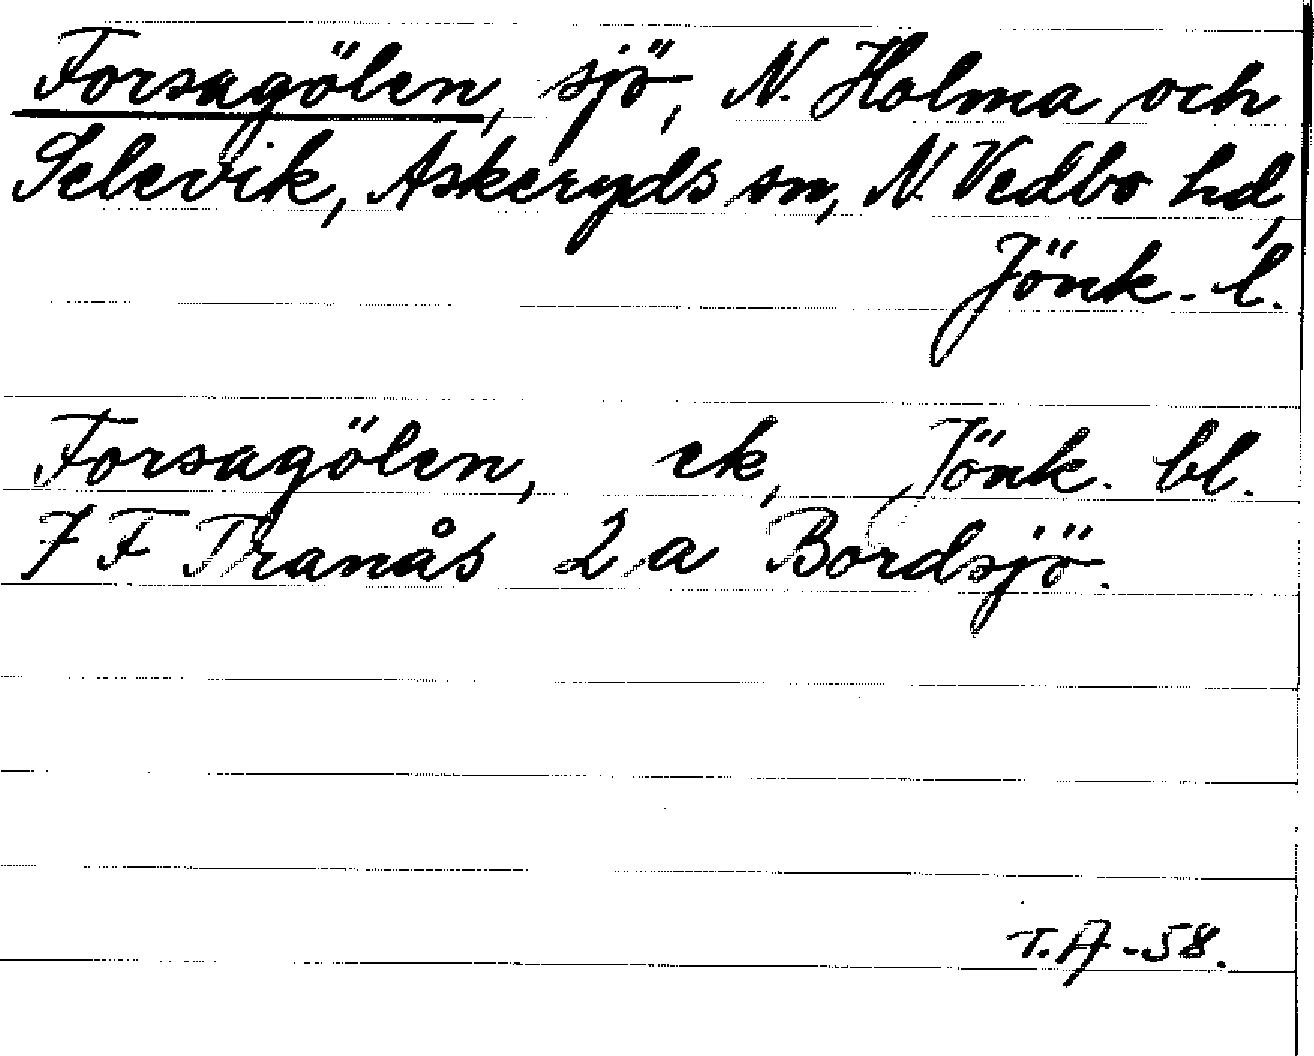 Forsagölen, sjö, N. Holma och
Selevik, Askeryds sn, N. Vedbo hd,
Jönk. l.
Forsagölen, ek, Jönk. bl.
7 F Tranås 2 a Bordsjö.
T.A -58.